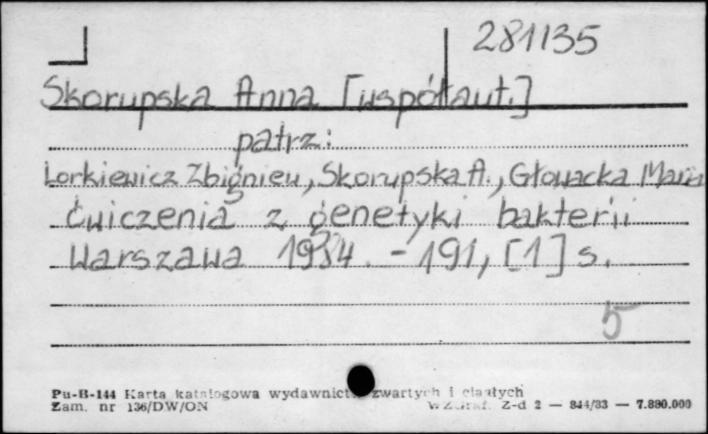 281135
Skorupska Anna [współaut.]
patrz:
Lorkiewicz Zbigniew, Skorupska A., Głowacka Maria
Ćwiczenia z genetyki bakterii
Warszawa 1984. - 191, [1] s.
5
Pu-B-144 Karta katalogowa wydawnictw zwartych i ciągłych
Zam. nr 136/DW/ON Z-d 2 — 844/83 — 7.880.000